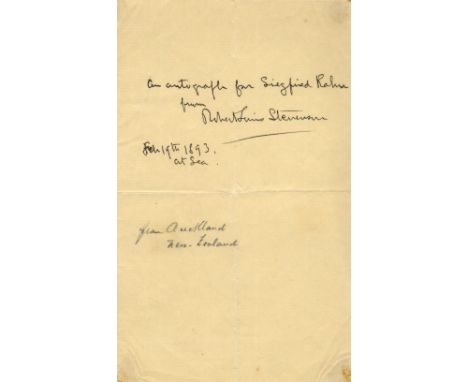 An autograph for Siegfried Rahn
from
Robert Louis Stevenson
Feb 19th 1893.
at Sea.
from Auckland
New. Zealand